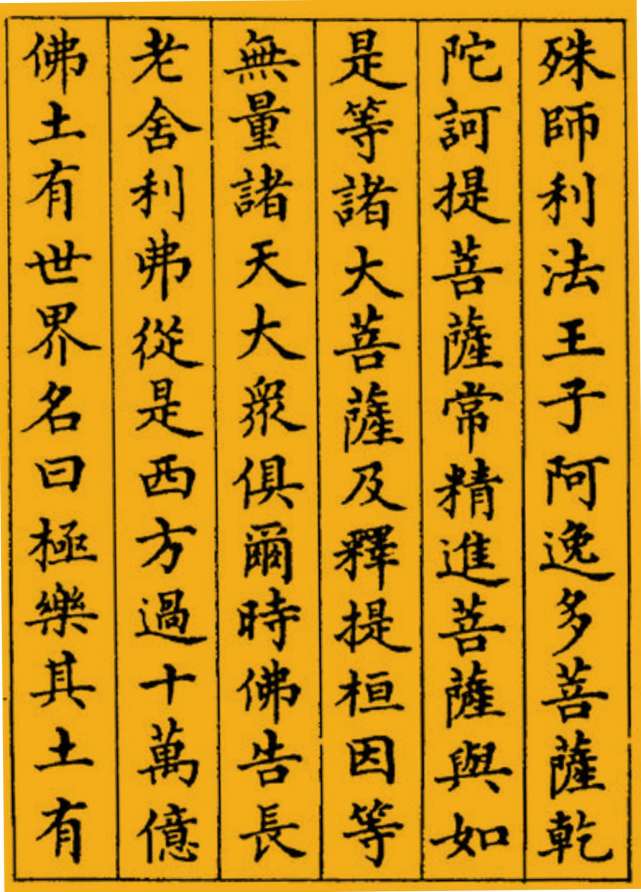 殊師利法王子阿逸多菩薩乾
陀訶提菩薩常精進菩薩與如
是等諸大菩薩及釋提桓因等
無量諸天大衆俱爾時佛告長
老舍利弗從是西方過十萬億
佛土有世界名曰極樂其土有